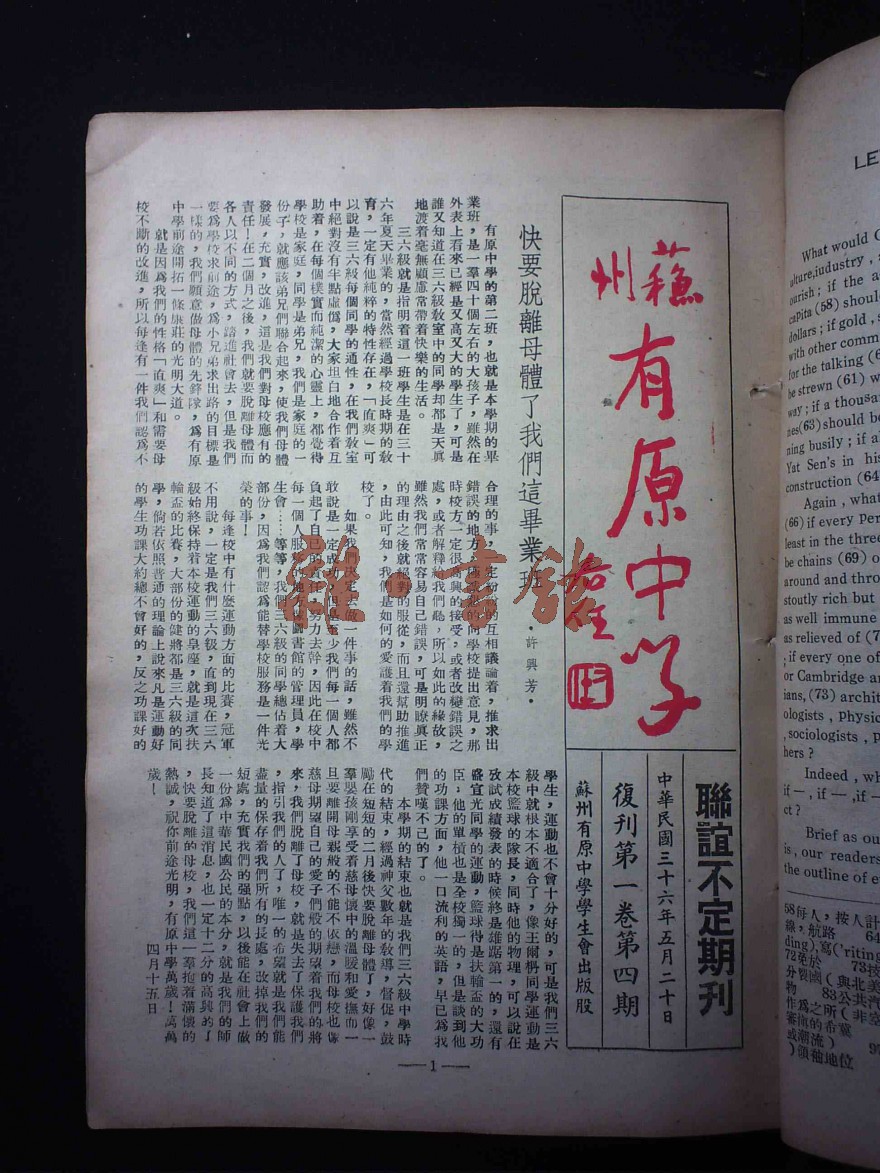 蘇州
有原中學
聯誼不定期刊
中華民國三十六年五月二十日
復刊第一卷第四期
蘇州有原中學學生會出版股
快要脫離母體了我們這畢業班
·許興芳·
有原中學的第二班，也就是本學期的畢
業班，是一羣四十個左右的大孩子，雖然在
外表上看來已經是又高又大的學生了，可是
誰又知道在三六級教室中的同學却都是天眞
地渡着毫無顧慮常帶着快樂的生活。
三六級就是指明着這一班學生是在三十
六年夏天畢業的，當然經過學校長時期的敎
育，一定有他純粹的特性存在，「直爽」可
以說是三六級每個同學的通性，在我們敎室
中絕對沒有半點虛僞，大家坦白地合作着互
助着，在每個樸實而純潔的心靈上，都覺得
學校是家庭，同學是弟兄，我們是家庭的一
份子，就應該弟兄們聯合起來，使我們母體
發展，充實，改進，這是我們對母校應有的
責任！在二個月之後，我們就要脫離母體而
各人以不同的方式，踏進社會去，但是我們
要爲學校求前途，爲小兄弟求出路的目標是
一樣的，我們願意做母體的先鋒隊，爲有原
中學前途開拓一條康莊的光明大道。
就是因爲我們的性格「直爽」和需要母
校不斷的改進，所以每逢有一件我們認爲不
合理的事，一定紛紛的互相議論着，推求出
錯誤的地方，
同學校提出意見，那
時校方一定很高興的接受，或者改變錯誤之
處，或者解釋給我們聽，所以如此的緣故，
雖然我們常常容易自己錯誤，可是明瞭眞正
的理由之後就絕對的服從，而且還幫助推進
，由此可知，我們是如何的愛護着我們的學
校了。
如果我們決定去做一件事的話，雖然不
敢說是一定成功，但是至少我們每一個人都
負起了自己的責任，努力去幹，因此在校中
每一個人服務的地方像圖書館的管理員，學
生會……等等，我們三六級的同學總佔着大
部份，因爲我們認爲能替學校服務是一件光
榮的事！
每逢校中有什麼運動方面的比賽，冠軍
不用說，一定是我們三六級，直到現在三六
級始終保持着本校運動的皇座，就是這次扶
輪盃的比賽，大部份的健將都是三六級的同
學，倘若依照普通的理論上說來凡是運動好
的學生功課大約總不會好的，反之功課好的
學生，運動也不會十分好的，可是我們三六
級中就根本不適合了，像王爾枬同學運動是
本校籃球的隊長，同時他的物理，可以說在
攷試成績發表的時候終是雄踞第一的，還有
盛宣光同學的運動，籃球待是扶輪盃的大功
臣；他的單槓也是全校獨一的，但是談到他
的功課方面，他一口流利的英語，早已爲我
們贊嘆不已的了。
本學期的結束也就是我們三六級中學時
代的結束，經過神父數年的敎導，督促，鼓
勵在短短的二月後快要脫離母體了，好像一
羣嬰孩剛享受着慈母懷中的溫暖和愛撫而一
且要離開母親般的不能不依戀，而母校也像
慈母期望自己的愛子們般的期望着我們的將
來，我們脫離了母校，就是失去了保護我們
，指引我們的人了，唯一的希望就是我們能
盡量的保存着我們所有的長處，改掉我們的
短處，充實我們的強點，以後能在社會上做
一份爲中華民國公民的本分，就是我們的師
長知道了這消息，也一定十二分的高興的了
，快要脫離的母校的強點！這一羣抱着滿懷的
熱誠，祝你前途光明，有原中學萬歲！萬萬
歲！
四月十五日
—1—
雜·書館
LE
What would C
ulture,iudustry,
ourish; if the a
capita (58) shoul
dollars; if gold, s
with other comm
for the talking (6
be strewn (61) w
way; if a thousan
nes(63)should be
ning busily; if al
Yat Sen's in his
construction (64
Again, what
(66) if every Per
least in the three
be chains (69) o
around and throu
stoutly rich but
as well immune
as relieved of (7
; if every one of
or Cambridge an
ians,(73) archit
ologists, Physic
,sociologists, p
hers ?
Indeed, wh
if—, if —,if—
ct?
Brief as ou
is, our readers
the outline of e
58每人，按人計
線，航路 64
ding),寫('riting
72免於 73技
分裂團(與北美
物 83公共汽